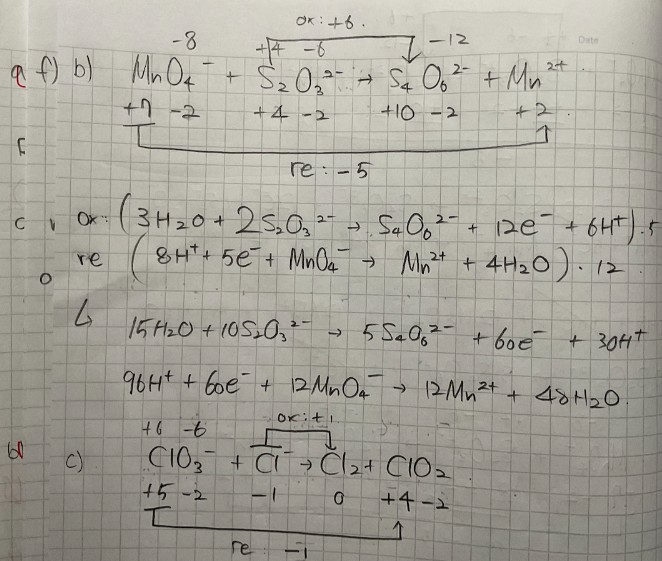 ox: +6.
-8 +4 -6 -12 Date
q f) b) MnO₄⁻ + S₂O₃²⁻ → S₄O₆²⁻ + Mn²⁺
+7 -2 +4 -2 +10 -2 +2.
re: -5
c ox: (3H₂O + 2S₂O₃²⁻ → S₄O₆²⁻ + 12e⁻ + 6H⁺).5
re (8H⁺ + 5e⁻ + MnO₄⁻ → Mn²⁺ + 4H₂O)·12
↳ 15H₂O + 10S₂O₃²⁻ → 5S₄O₆²⁻ + 60e⁻ + 30H⁺
96H⁺ + 60e⁻ + 12MnO₄⁻ → 12Mn²⁺ + 48H₂O.
ox: +1
+6 -6
c) ClO₃⁻ + Cl⁻ → Cl₂ + ClO₂
+5 -2 -1 0 +4 -2
re -1